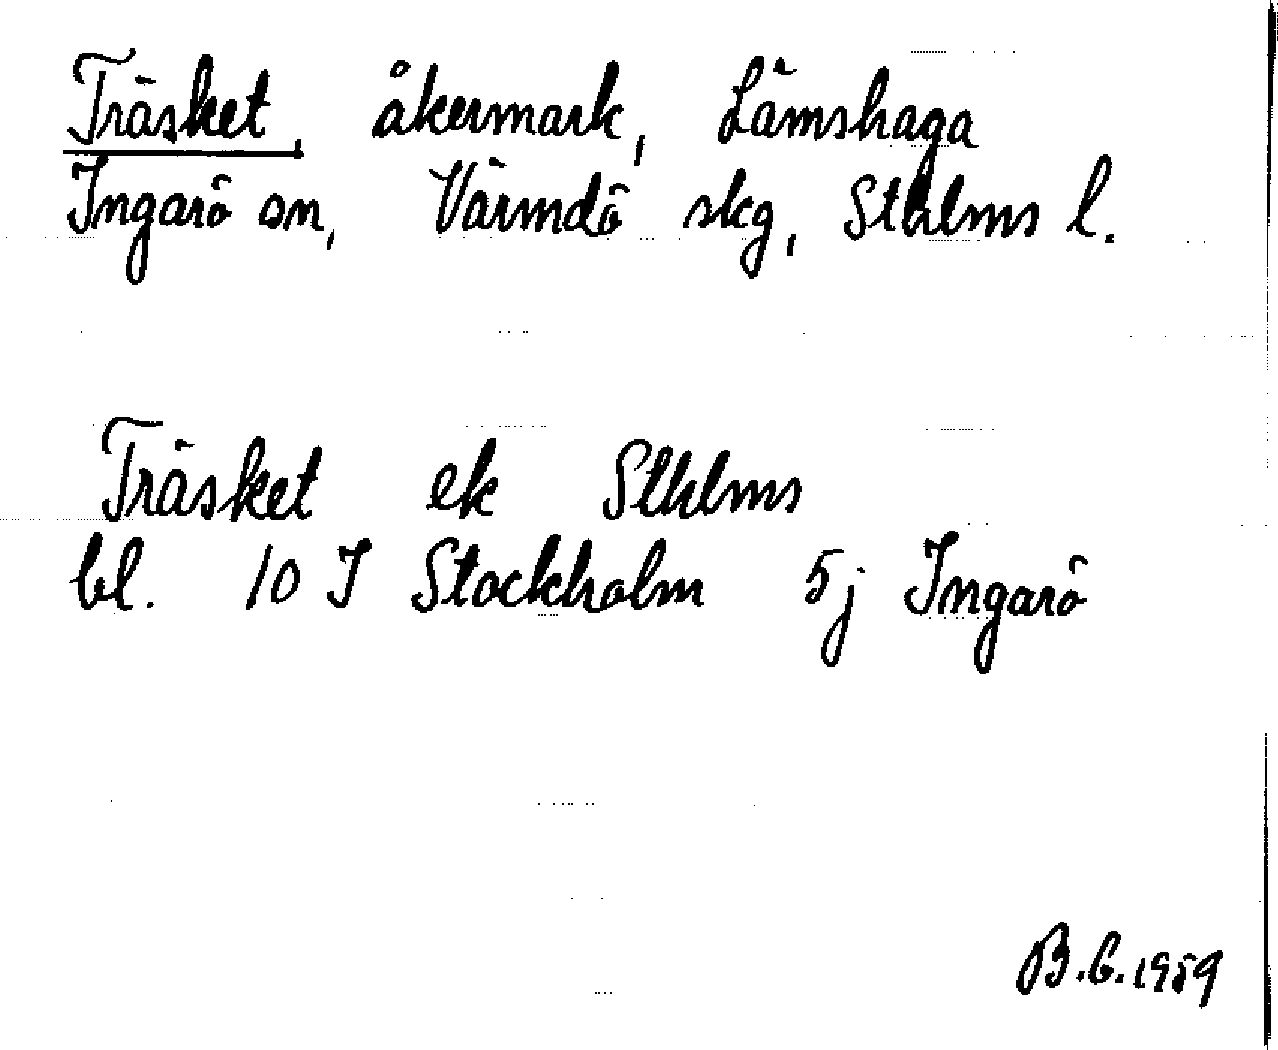 Träsket, åkermark, Lämshaga
Ingarö sn, Värmdö skg, Sthlms l.
Träsket ek Sthlms
bl. 10 J Stockholm 5j Ingarö
B.G.1959